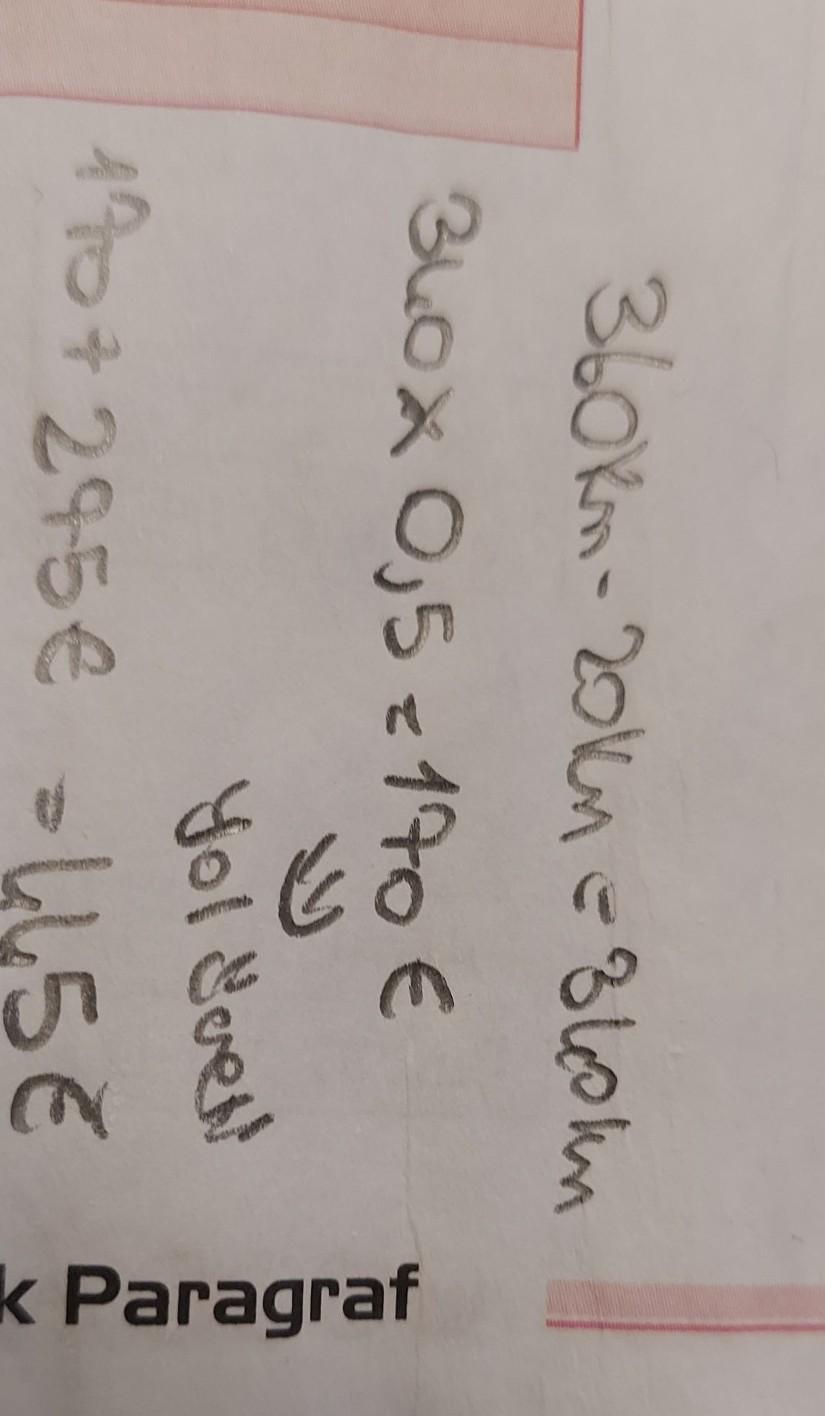 360km - 20km = 340km
340 x 0,5 = 170 €
yol
170 + 275€ = 445€
k Paragraf